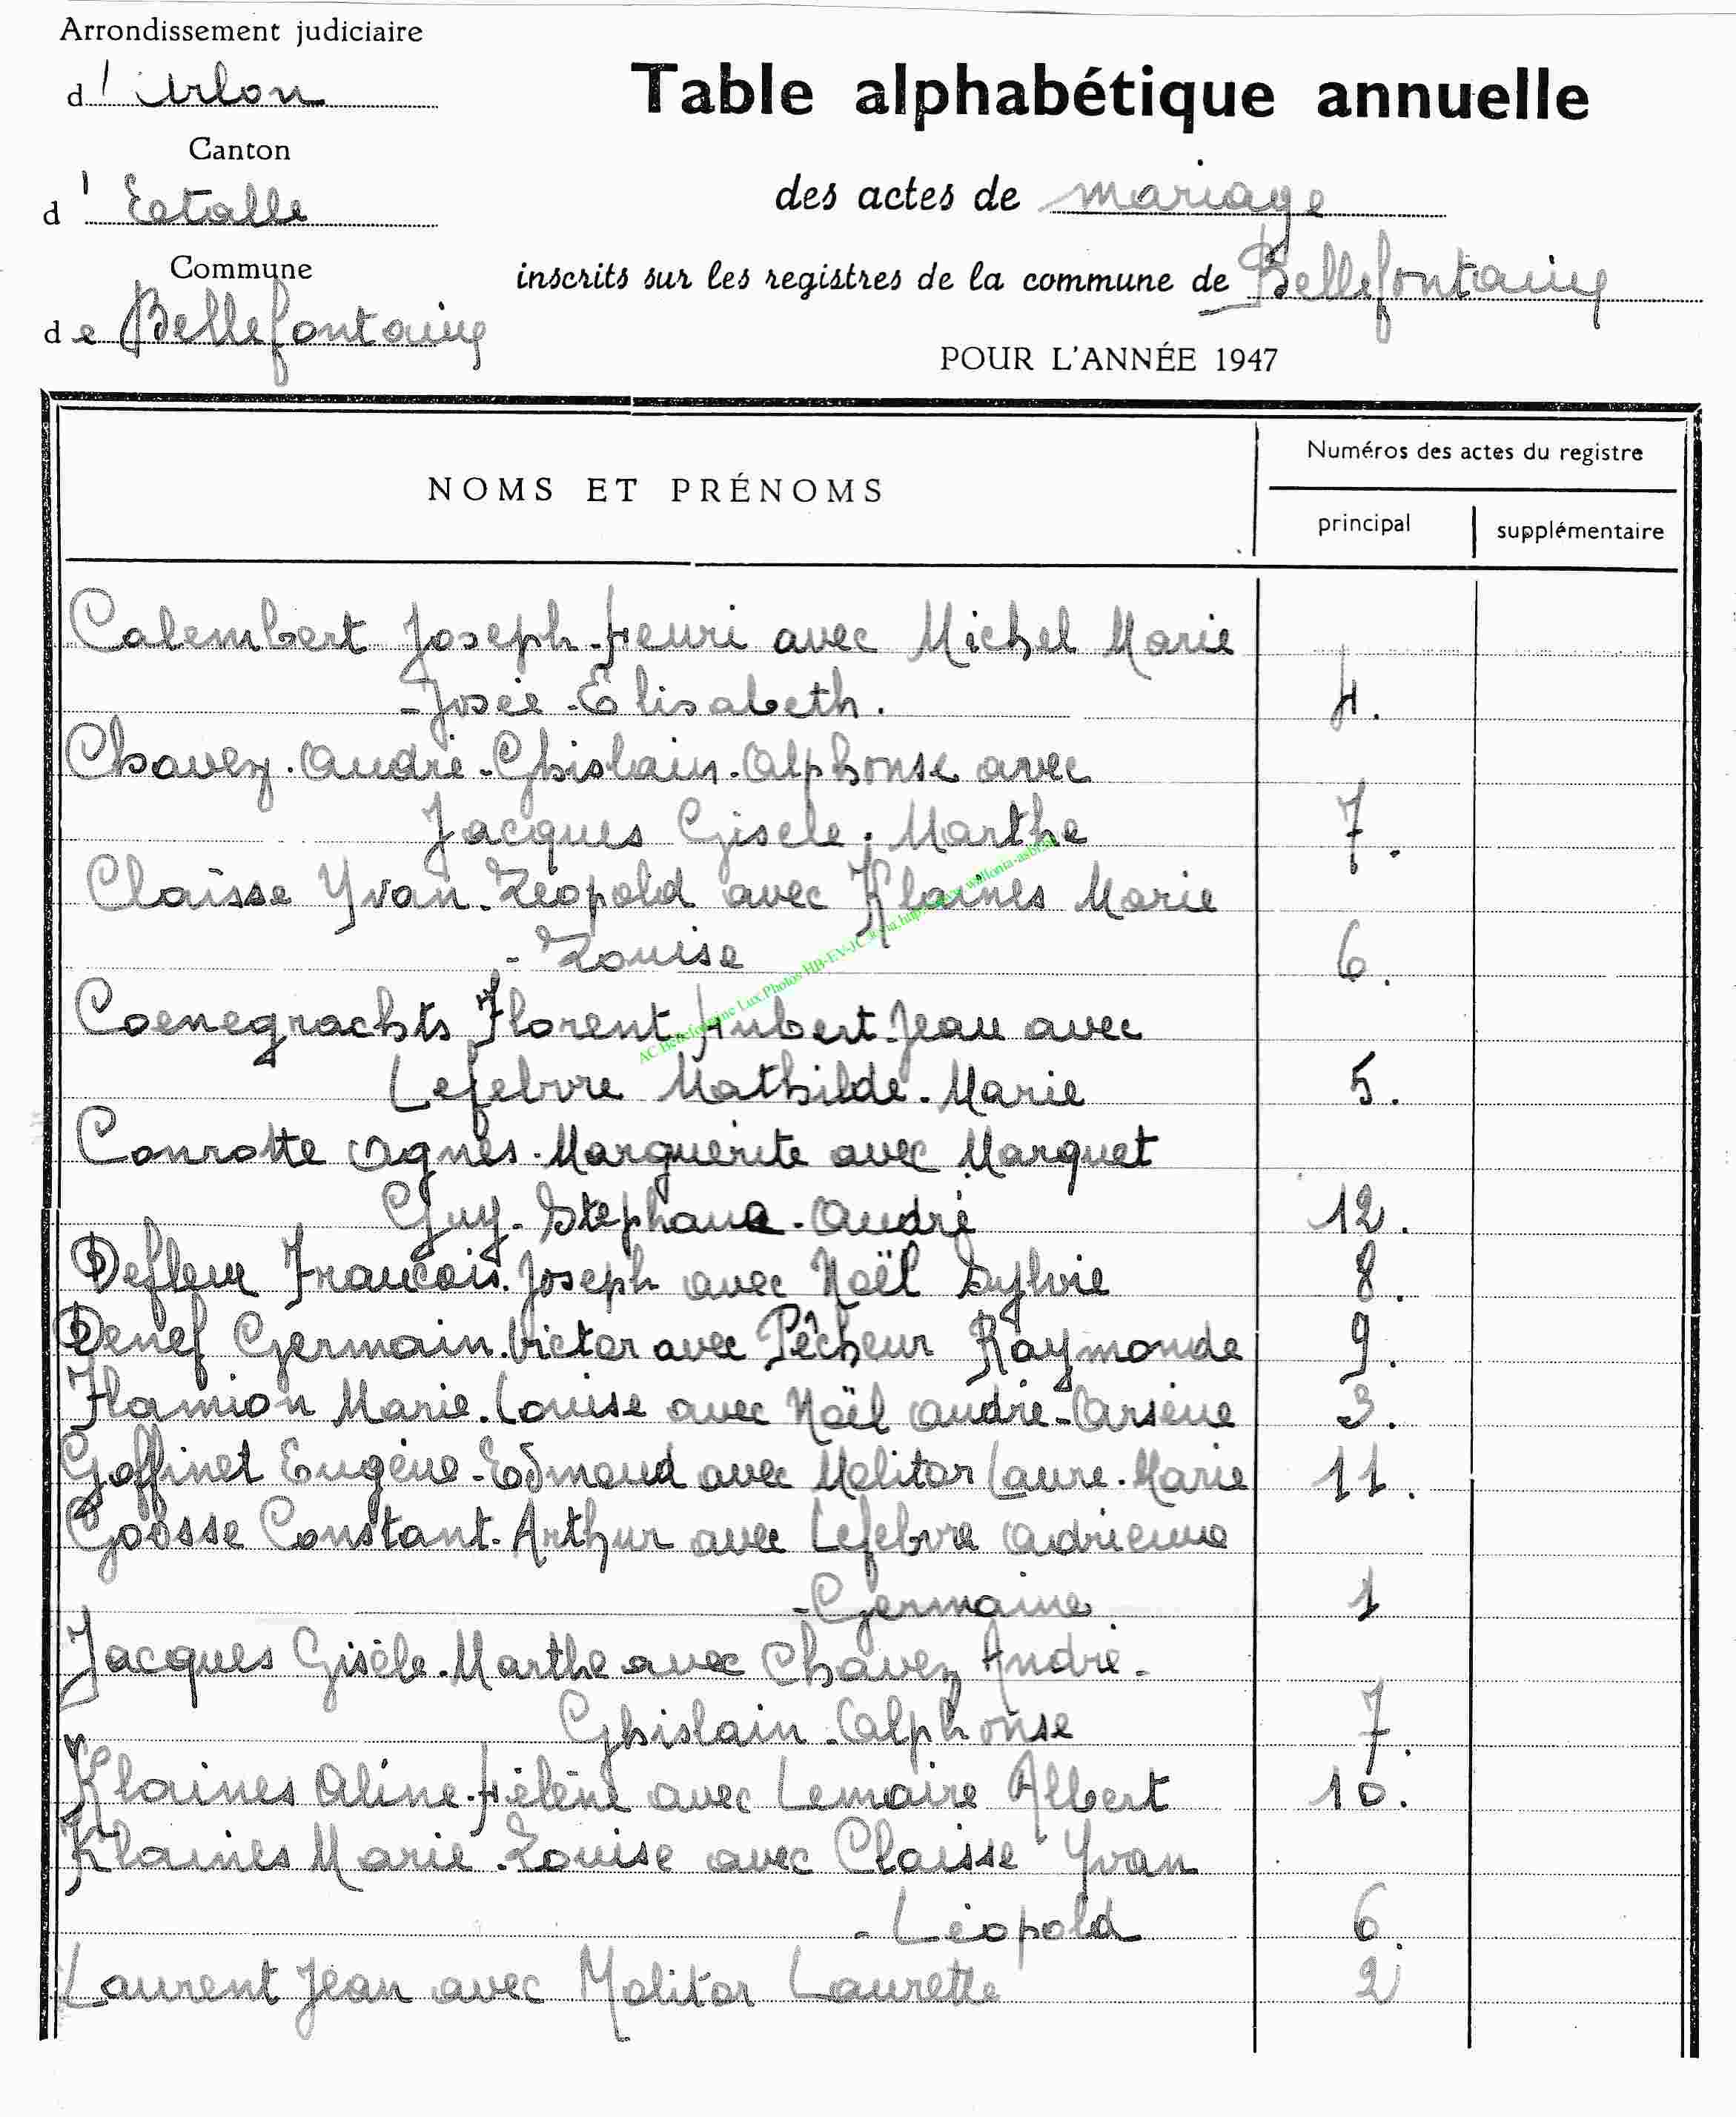 Arrondissement judiciaire
d' Arlon
Canton
d' Etalle
Commune
de Bellefontaine
Table alphabétique annuelle
des actes de mariage
inscrits sur les registres de la commune de Bellefontaine
POUR L'ANNÉE 1947
NOMS ET PRÉNOMS
Numéros des actes du registre
principal
supplémentaire
Calembert Joseph-Henri avec Michel Marie
-Josée-Elisabeth. 4.
Chavez. André-Ghislain-Alphonse avec
Jacques Gisèle. Marthe 7.
Claisse Yvan-Léopold avec Klaines Marie
-Louise 6.
Coenegrachts Florent-Hubert-Jean avec
Lefebvre Mathilde-Marie 5.
Conrotte Agnès-Marguerite avec Marquet
Guy-Stephane-André 12.
Defleur Francois-Joseph avec Noël Sylvie 8.
Denef Germain-Victor avec Pêcheur Raymonde 9.
Flamion Marie-Louise avec Noël André-Arsène 3.
Goffinet Eugène-Edmond avec Molitor Laure-Marie 11.
Goosse Constant-Arthur avec Lefebvre Adrienne
-Germaine 1
Jacques Gisèle-Marthe avec Chavez André-
Ghislain-Alphonse 7.
Klaines Aline-Hélène avec Lemaire Albert 10.
Klaines Marie-Louise avec Claisse Yvan
-Léopold 6.
Laurent Jean avec Molitor Laurette 2
AC Bellefontaine Lux.Photos HB-EV-JC